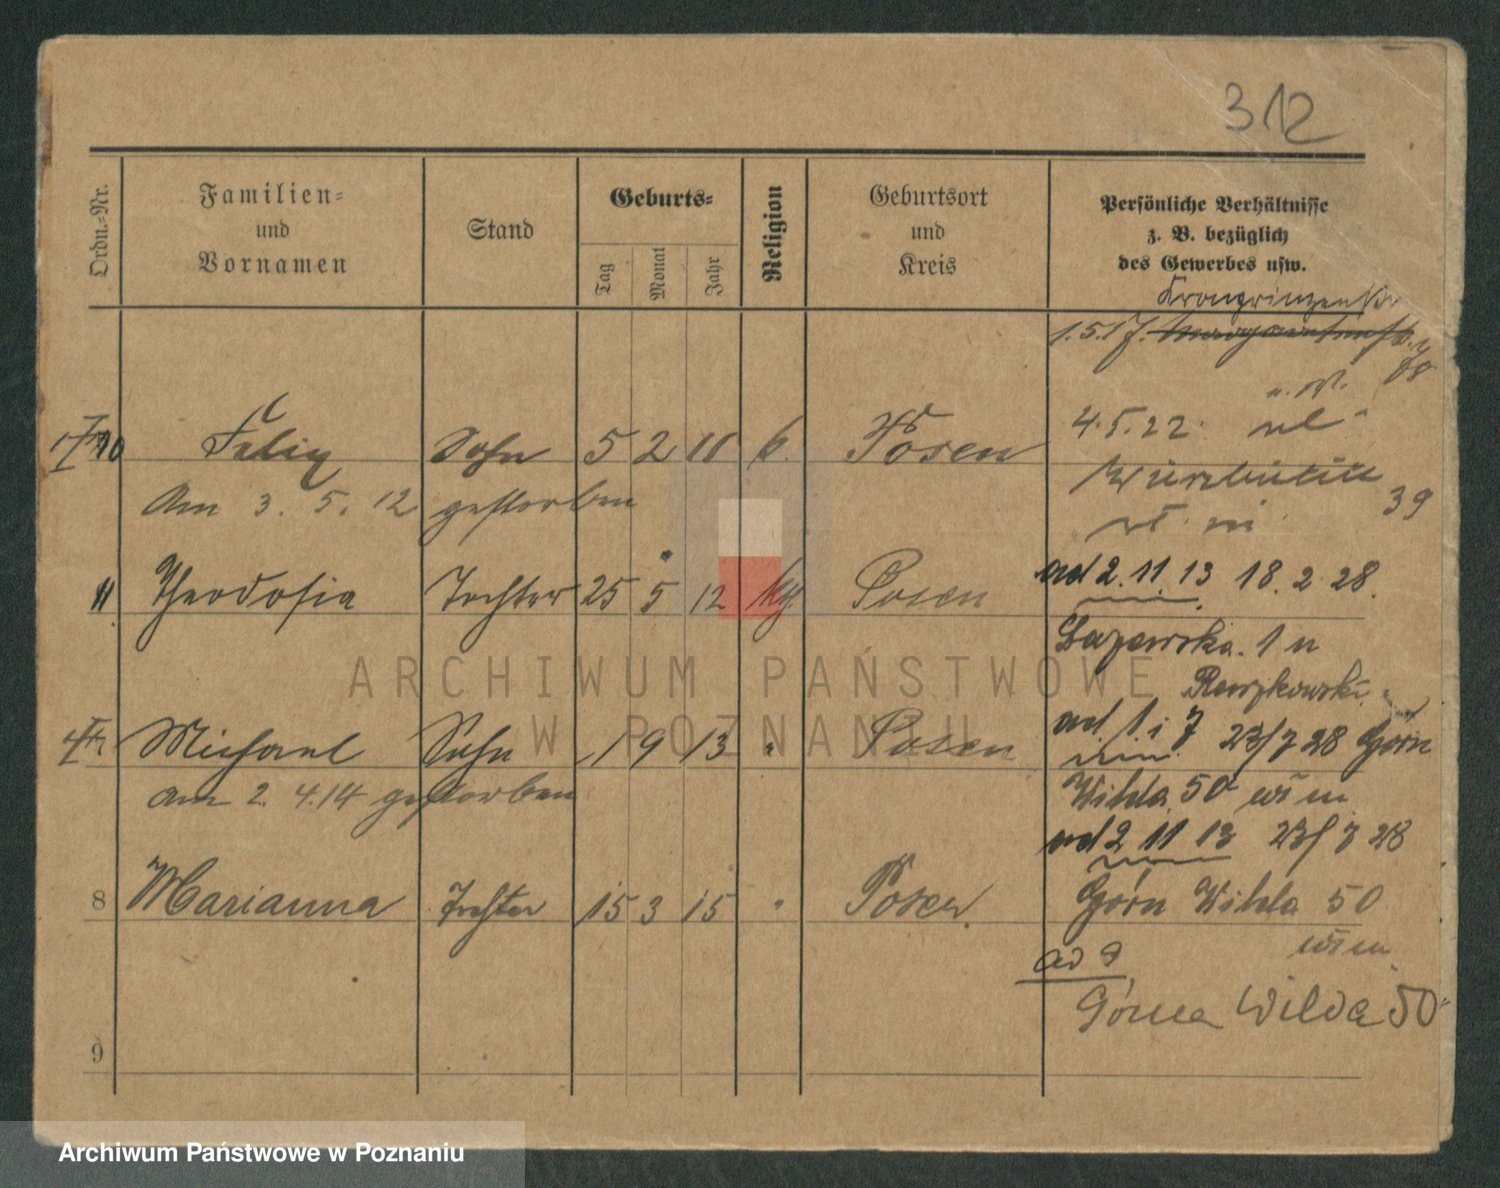 312
Ordn.=Nr.
Familien=
und
Vornamen
Stand
Geburts=
Tag
Monat
Jahr
Religion
Geburtsort
und
Kreis
Persönliche Verhältnisse
z. B. bezüglich
des Gewerbes usw.
Kronprinzenstr
1.5.17. Margaretenstr.
4.5.22. ul
39
10 Felix Sohn 5 2 11 k. Posen
Am 3. 5. 12 gestorben
11 Theodosia Tochter 25 5 12 kth. Posen
ad 2. 11. 13 18. 2. 28.
Łazarska. 1 u
Raszkowski
Michael Sohn 1 9 13 " Posen
am 2. 4. 14 gestorben
ad 1 i 7 23/7 28 Górn
Wilda 50
ad 2 11 13 23/7 28
8 Marianna Tochter 15 3 15 " Posen
Górn Wilda 50
ad 9
Górna Wilda 50
9
ARCHIWUM PAŃSTWOWE
W POZNANIU
Archiwum Państwowe w Poznaniu